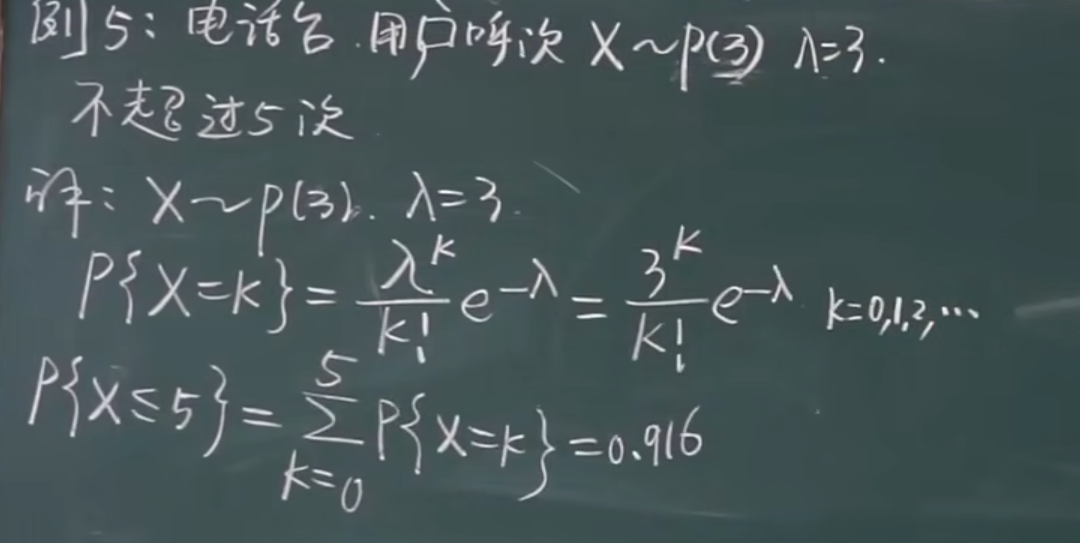 例5: 电话台.用户呼次 X~P(3) λ=3.
不超过5次
解: X~P(3). λ=3.
P{X=k}=λ^k/k! e^-λ=3^k/k! e^-λ k=0,1,2,…
P{X≤5}=∑_{k=0}^{5}P{X=k}=0.916